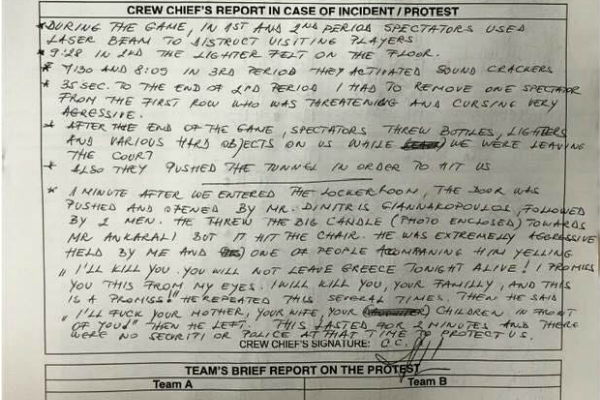 CREW CHIEF'S REPORT IN CASE OF INCIDENT / PROTEST
* DURING THE GAME, IN 1ST AND 2ND PERIOD SPECTATORS USED
LASER BEAM TO DISTRUCT VISITING PLAYERS
* 9:28 IN 2ND THE LIGHTER FELT ON THE FLOOR.
* 7:30 AND 8:09 IN 3RD PERIOD THEY ACTIVATED SOUND CRACKERS
* 35 SEC. TO THE END OF 2PD PERIOD I HAD TO REMOVE ONE SPECTATOR
FROM THE FIRST ROW WHO WAS THREATENING AND CURSING VERY
AGRESSIVE.
* AFTER THE END OF THE GAME, SPECTATORS THREW BOTTLES, LIGHTERS
AND VARIOUS HARD OBJECTS ON US WHILE WE WERE LEAVING
THE COURT
* ALSO THEY PUSHED THE TUNNEL IN ORDER TO HIT US
* 1 MINUTE AFTER WE ENTERED THE LOCKERROOM, THE DOOR WAS
PUSHED AND OPENED BY MR. DIMITRIS GIANNAKOPOULOS, FOLLOWED
BY 2 MEN. HE THREW THE BIG CANDLE (PHOTO ENCLOSED) TOWARDS
MR ANKARALI BUT IT HIT THE CHAIR. HE WAS EXTREMELY AGGRESSIVE
HELD BY ME AND ONE OF PEOPLE ACOMPANING HIM YELLING
„I'LL KILL YOU. YOU WILL NOT LEAVE GREECE TONIGHT ALIVE! I PROMISS
YOU THIS FROM MY EYES. I WILL KILL YOU, YOUR FAMILLY, AND THIS
IS A PROMISS!" HE REPEATED THIS SEVERAL TIMES. THEN HE SAID
„I'LL FUCK YOUR MOTHER, YOUR WIFE, YOUR CHILDREN IN FRONT
OF YOU!" THEN HE LEFT. THIS LASTED FOR 2 MINUTES AND THERE
WERE NO SECURITI OR POLICE AT THAT TIME TO PROTECT US.
CREW CHIEF'S SIGNATURE: C.C.
TEAM'S BRIEF REPORT ON THE PROTEST
Team A Team B